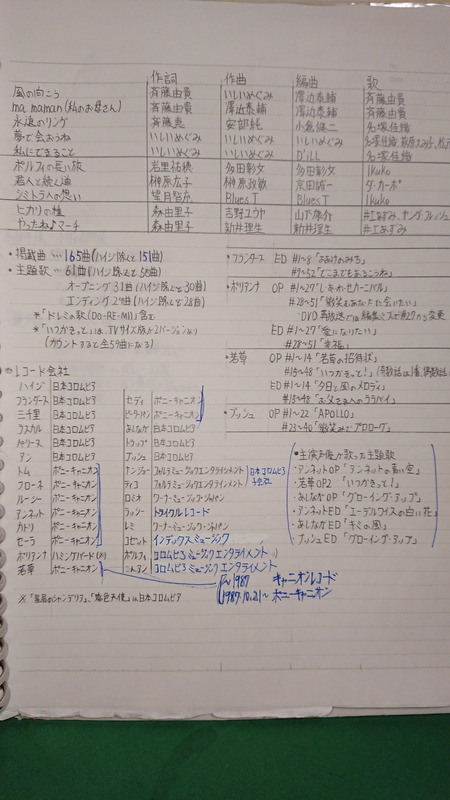 作詞 作曲 編曲 歌
風の向こう 斉藤由貴 いしいめぐみ 澤近泰輔 斉藤由貴
ma maman (私のお母さん) 斉藤由貴 澤近泰輔 澤近泰輔 斉藤由貴
永遠のリング 斉藤恵 安部純 小倉健二 名塚佳織
夢で会おうね いしいめぐみ いしいめぐみ いしいめぐみ
私にできること いしいめぐみ いしいめぐみ D'ILL 名塚佳織
ポルフィの長い旅 岩里祐穂 多田彰文 多田彰文 Ikuko
君人と続く道 榊原広子 榊原政敏 京田誠一 ダ・カーポ
シミトラへの思い 望月智充 Blues T Blues T Ikuko
ヒカリの種 森由里子 吉野ユウヤ 山下康介
やったね♪マーチ 森由里子 新井理生 新井理生 井上あずみ
・掲載曲 … 165曲 (ハイジ除くと151曲)
・主題歌 … 61曲
オープニング31曲 (ハイジ除くと30曲)
エンディング29曲 (ハイジ除くと28曲)
*「ドレミの歌 (DO-RE-MI)」含む
*「いつかきっと」は、TVサイズ版が2バージョンあり
(カウントすると全59曲になる)
・フランダース ED #1~8「おはけのみち」
#9~52「どこまでもあるこうね」
・ポリアンナ OP #1~27「しあわせカーニバル」
#28~51「微笑むあなたに会いたい」
ED #1~27「愛になりたい」
#28~51「幸福」
・若草 OP #1~14「若草の招待状」
#15~48「いつかきっと!」
ED #1~14「夕日と風のメロディ」
#15~48「お父さまへのララバイ」
・ブッシュ OP #1~22「APOLLO」
#23~40「微笑みでプロローグ」
・レコード会社
ハイジ 日本コロムビア
フランダース 日本コロムビア セディ ポニーキャニオン
三千里 日本コロムビア ピーターパン ポニーキャニオン
ラスカル 日本コロムビア あしなが 日本コロムビア
ペリーヌ 日本コロムビア トラップ 日本コロムビア
アン 日本コロムビア ブッシュ 日本コロムビア
トム ポニーキャニオン ナンジョー フォルテミュージックエンタテインメント 日本コロムビア子会社
フローネ ポニーキャニオン ティコ フォルテミュージックエンタテインメント
ルーシー ポニーキャニオン ロミオ ワーナーミュージック・ジャパン
アンネット ポニーキャニオン ラッシー トライクルレコード
カトリ ポニーキャニオン レミ ワーナーミュージック・ジャパン
セーラ ポニーキャニオン コゼット インデックスミュージック
ポリアンナ ハミングバード ポルフィ コロムビアミュージックエンタテインメント
若草 ポニーキャニオン こんアン コロムビアミュージックエンタテインメント
・主演声優が歌った主題歌
・アンネットOP「アンネットの青い空」
・若草OP2「いつかきっと!」
・あしながOP「グローイング・アップ」
・アンネットED「エーデルワイスの白い花」
・あしながED「キミの風」
・ブッシュED「グローイング・アップ」
~1987 キャニオンレコード
1987.10.21~ ポニーキャニオン